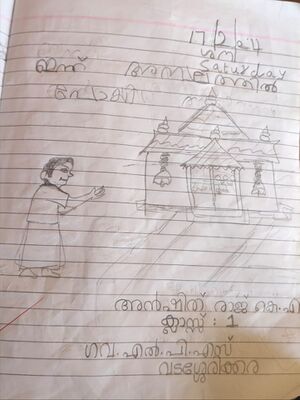 17/2/24
ശനി
Saturday
ഇന്ന് അമ്പലത്തിൽ
പോയി
അൻഷിത്. രാജ് കെ.എ
ക്ലാസ്സ് : 1
ഗവ.എൽ.പി.എസ്
വടശ്ശേരിക്കര